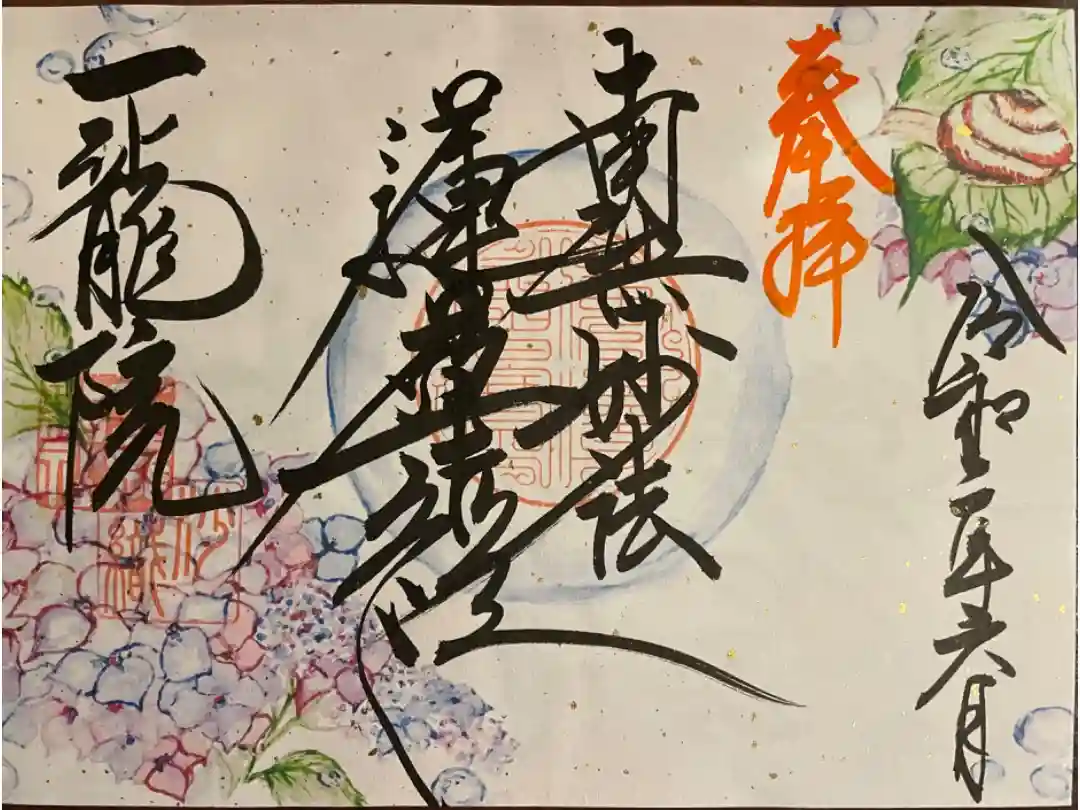 令和二年六月
奉拝
南無妙法
蓮華経
一龍院